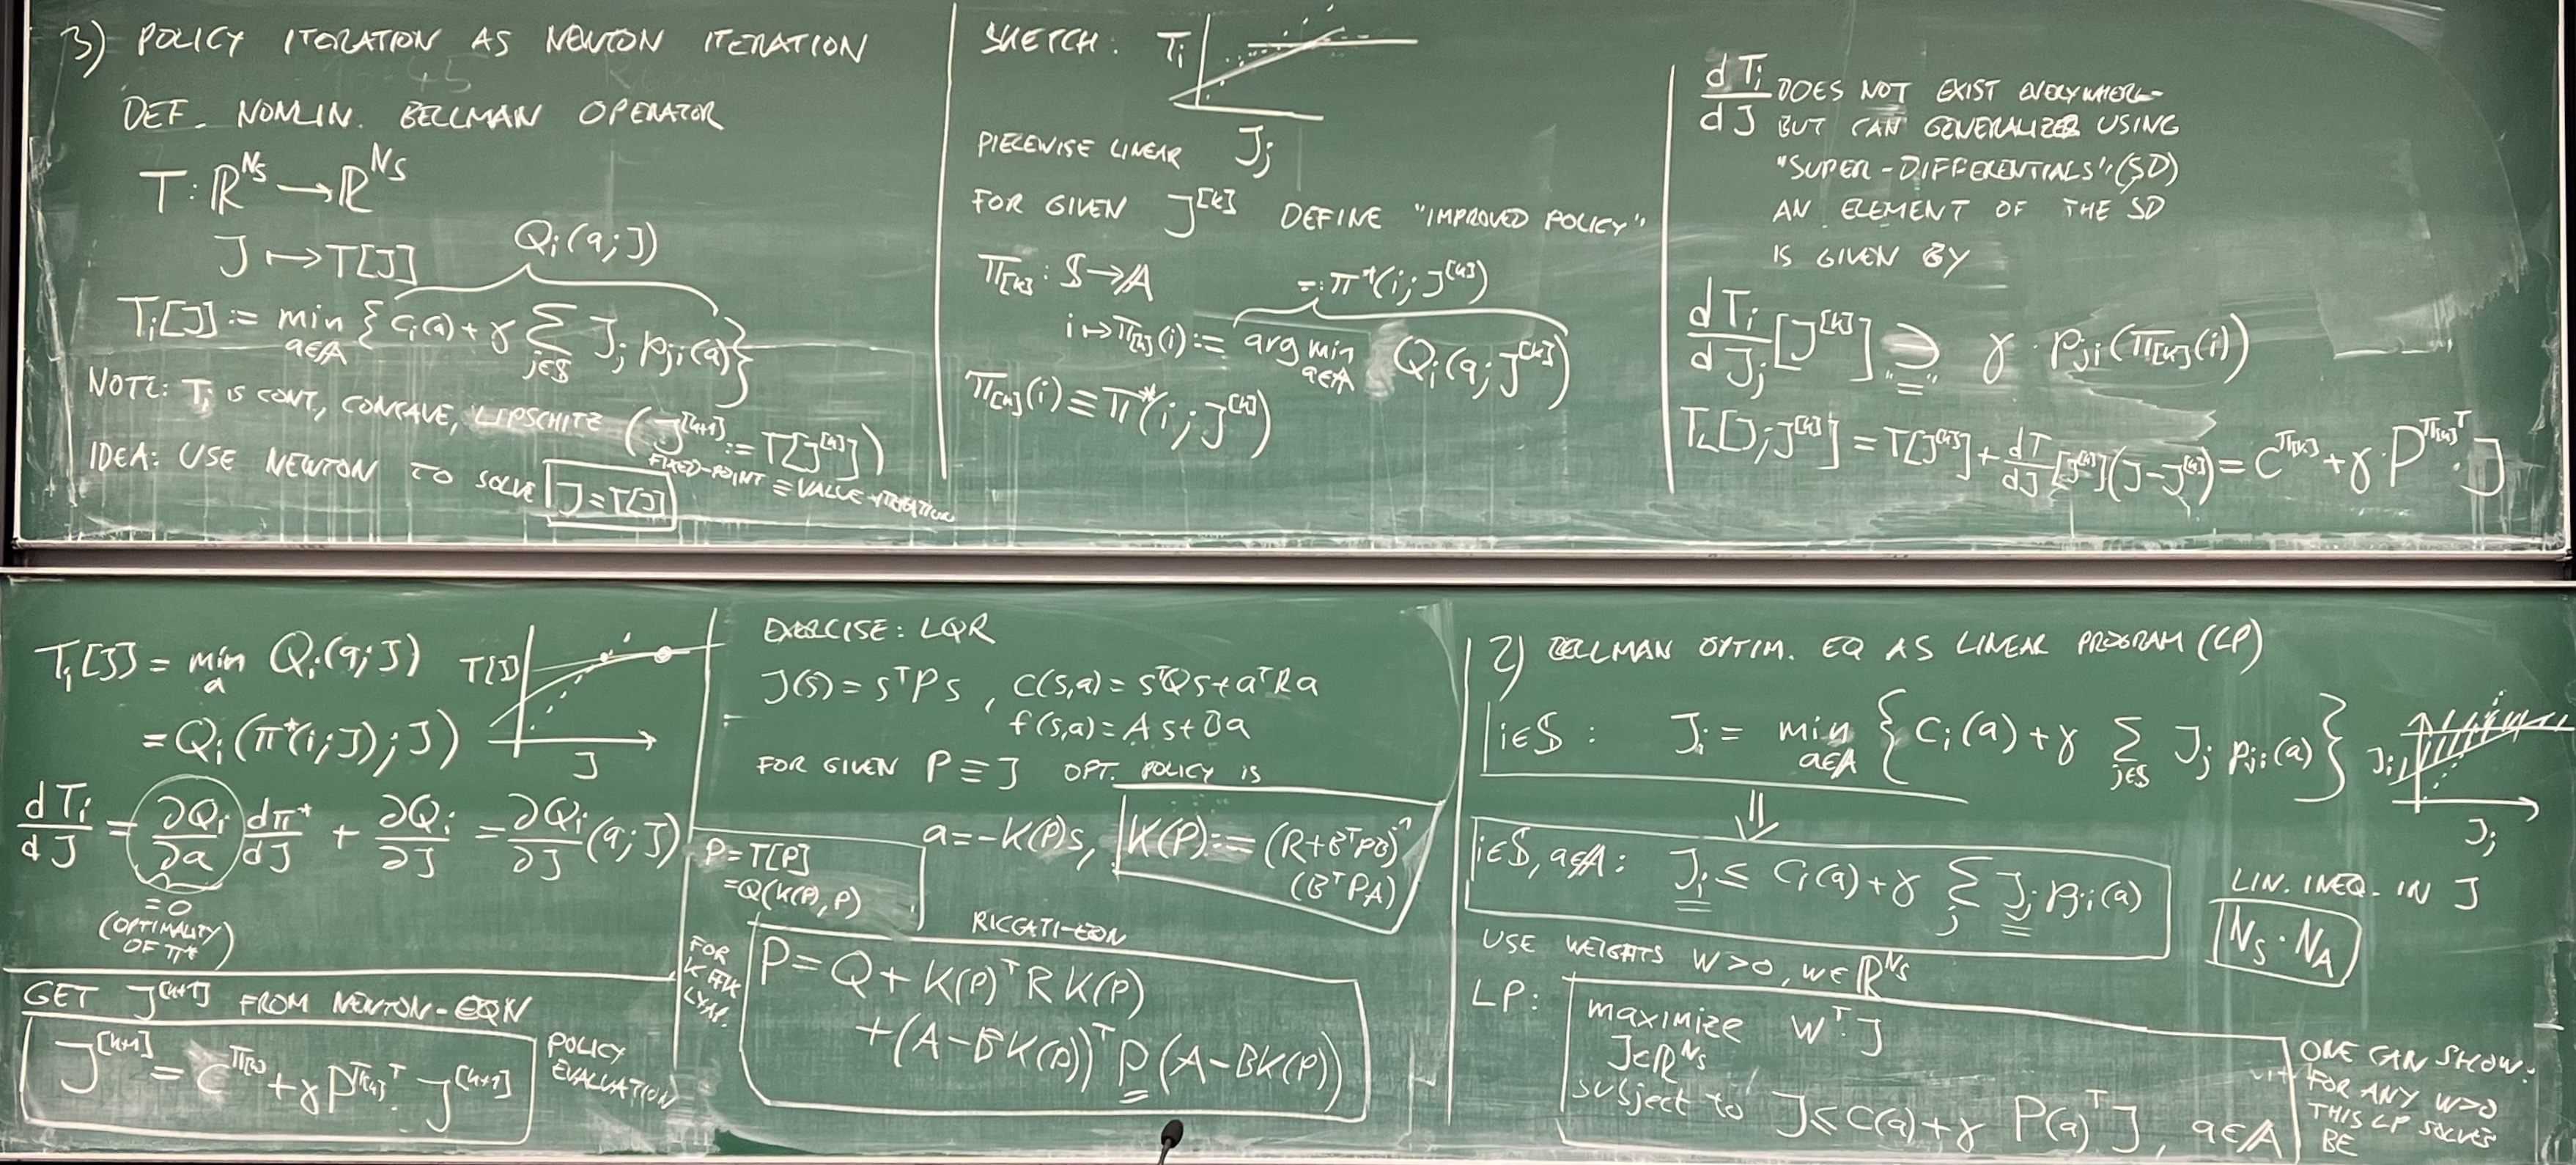 3) POLICY ITERATION AS NEWTON ITERATION
DEF. NONLIN. BELLMAN OPERATOR
T: ℝ^{N_S} → ℝ^{N_S}
J ↦ T[J]
Q_i(a; J)
T_i[J] := min_{a∈𝔸} { c_i(a) + γ Σ_{j∈𝕊} J_j p_{ji}(a) }
NOTE: T_i IS CONT., CONCAVE, LIPSCHITZ (J^{[k+1]} := T[J^{[k]}])
FIXED-POINT ≡ VALUE ITERATION
IDEA: USE NEWTON TO SOLVE J = T[J]
SKETCH: T_i
J_j
PIECEWISE LINEAR
FOR GIVEN J^{[k]} DEFINE "IMPROVED POLICY"
π_{[k]}: 𝕊 → 𝔸
=: π*(i; J^{[k]})
i ↦ π_{[k]}(i) := arg min_{a∈𝔸} Q_i(a; J^{[k]})
π_{[k]}(i) ≡ π*(i; J^{[k]})
dT_i/dJ DOES NOT EXIST EVERYWHERE
BUT CAN GENERALIZED USING
"SUPER-DIFFERENTIALS" (SD)
AN ELEMENT OF THE SD
IS GIVEN BY
dT_i/dJ_j [J^{[k]}] ∋ "=" γ · p_{ji}(π_{[k]}(i))
T_L[J; J^{[k]}] = T[J^{[k]}] + dT/dJ [J^{[k]}](J - J^{[k]}) = C^{π_{[k]}} + γ · P^{π_{[k]}ᵀ} · J
T_i[J] = min_a Q_i(a; J)
= Q_i(π*(i; J); J)
T[J]
J
dT_i/dJ = ∂Q_i/∂a dπ*/dJ + ∂Q_i/∂J = ∂Q_i/∂J (a; J)
= 0
(OPTIMALITY
OF π*)
GET J^{[k+1]} FROM NEWTON-EQN
J^{[k+1]} = C^{π_{[k]}} + γ P^{π_{[k]}ᵀ} · J^{[k+1]}
POLICY
EVALUATION
EXERCISE: LQR
J(s) = sᵀPs, c(s,a) = sᵀQs + aᵀRa
f(s,a) = As + Ba
FOR GIVEN P ≡ J OPT. POLICY IS
a = -K(P)s, K(P) := (R + BᵀPB)⁻¹
(BᵀPA)
P = T[P]
= Q(K(P), P)
FOR
K FIX
LYAP.
RICCATI-EQN
P = Q + K(P)ᵀ R K(P)
+ (A - BK(P))ᵀ P (A - BK(P))
2) BELLMAN OPTIM. EQ AS LINEAR PROGRAM (LP)
i∈𝕊: J_i = min_{a∈𝔸} { c_i(a) + γ Σ_{j∈𝕊} J_j p_{ji}(a) }
J_i
J_j
⇓
i∈𝕊, a∈𝔸: J_i ≤ c_i(a) + γ Σ_j J_j p_{ji}(a)
LIN. INEQ. IN J
N_S · N_A
USE WEIGHTS W > 0, W ∈ ℝ^{N_S}
LP: maximize Wᵀ·J
J∈ℝ^{N_S}
subject to J ≤ C(a) + γ P(a)ᵀ J, a∈𝔸
ONE CAN SHOW:
FOR ANY W>0
THIS LP SOLVES
BE